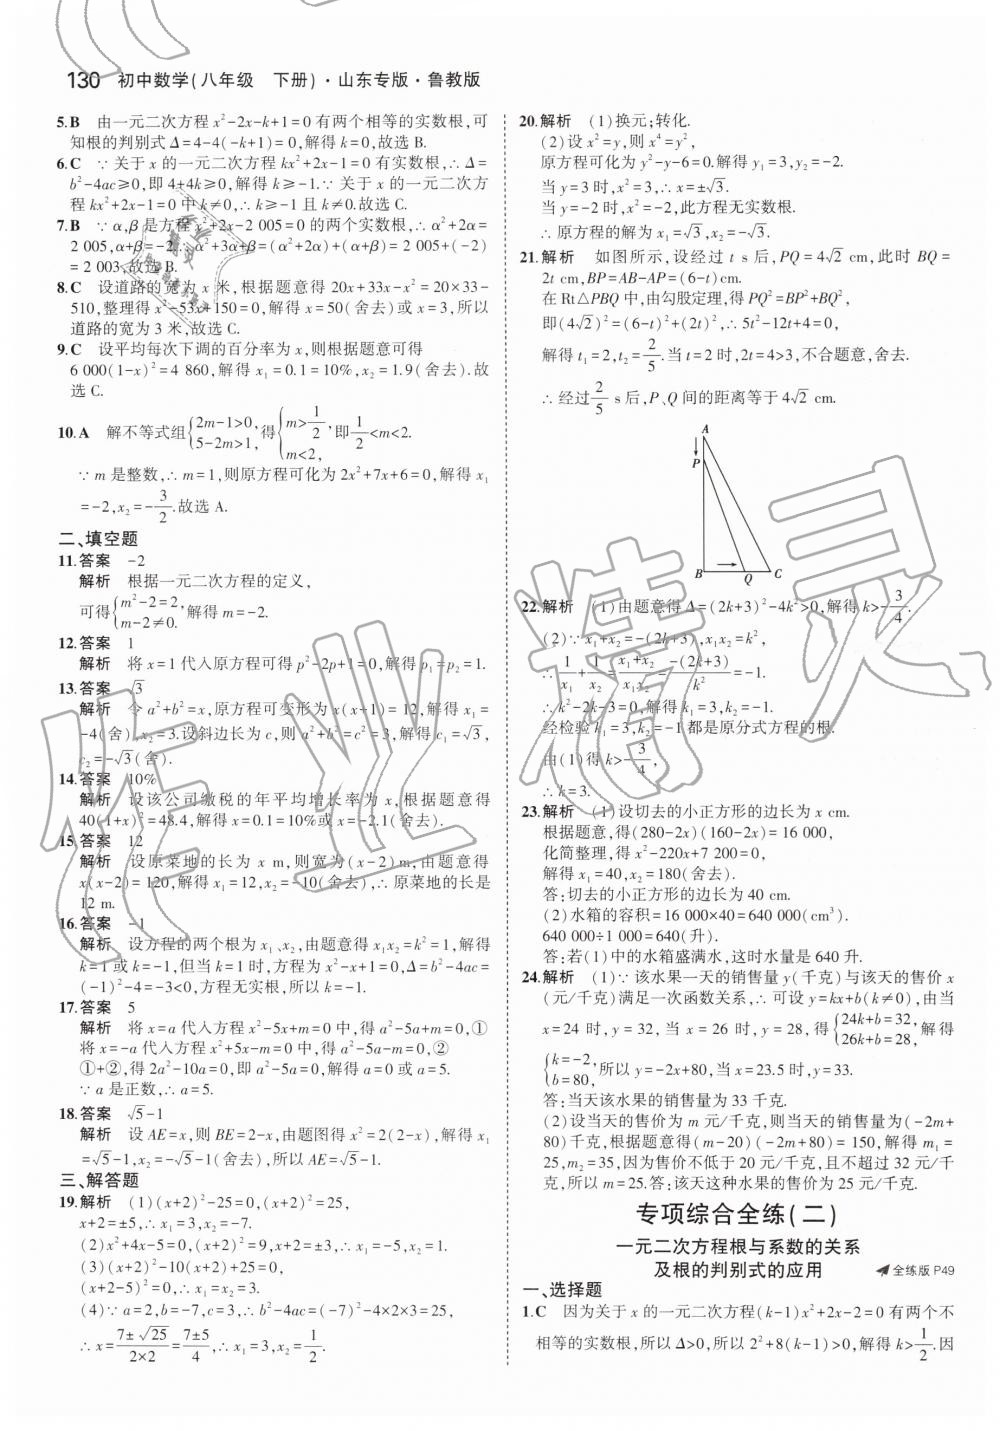 130 初中数学(八年级 下册)·山东专版·鲁教版
5.B 由一元二次方程 x²-2x-k+1=0 有两个相等的实数根,可
知根的判别式 Δ=4-4(-k+1)=0,解得 k=0,故选 B.
6.C ∵ 关于 x 的一元二次方程 kx²+2x-1=0 有实数根,∴ Δ=
b²-4ac≥0,即 4+4k≥0,解得 k≥-1.∵ 关于 x 的一元二次方
程 kx²+2x-1=0 中 k≠0,∴ k≥-1 且 k≠0.故选 C.
7.B ∵ α,β 是方程 x²+2x-2 005=0 的两个实数根,∴ α²+2α=
2 005,α+β=-2.∴ α²+3α+β=(α²+2α)+(α+β)= 2 005+(-2)
= 2 003.故选 B.
8.C 设道路的宽为 x 米,根据题意得 20x+33x-x²=20×33-
510,整理得 x²-53x+150=0,解得 x=50(舍去)或 x=3,所以
道路的宽为 3 米,故选 C.
9.C 设平均每次下调的百分率为 x,则根据题意可得
6 000(1-x)²=4 860,解得 x₁=0.1=10%,x₂=1.9(舍去).故
选 C.
10.A 解不等式组{2m-1>0, 5-2m>1,得{m>1/2, m<2,即1/2<m<2.
∵ m 是整数,∴ m=1,则原方程可化为 2x²+7x+6=0,解得 x₁
=-2,x₂=-3/2.故选 A.
二、填空题
11.答案 -2
解析 根据一元二次方程的定义,
可得{m²-2=2, m-2≠0.解得 m=-2.
12.答案 1
解析 将 x=1 代入原方程可得 p²-2p+1=0,解得 p₁=p₂=1.
13.答案 √3
解析 令 a²+b²=x,原方程可变形为 x(x+1)=12,解得 x₁=
-4(舍),x₂=3.设斜边长为 c,则 a²+b²=c²=3,解得 c₁=√3,
c₂=-√3(舍).
14.答案 10%
解析 设该公司缴税的年平均增长率为 x,根据题意得
40(1+x)²=48.4,解得 x=0.1=10%或 x=-2.1(舍去).
15.答案 12
解析 设原菜地的长为 x m,则宽为(x-2)m,由题意得
x(x-2)=120,解得 x₁=12,x₂=-10(舍去),∴ 原菜地的长是
12 m.
16.答案 -1
解析 设方程的两个根为 x₁、x₂,由题意得 x₁x₂=k²=1,解得
k=1 或 k=-1,但当 k=1 时,方程为 x²-x+1=0,Δ=b²-4ac=
(-1)²-4=-3<0,方程无实根,所以 k=-1.
17.答案 5
解析 将 x=a 代入方程 x²-5x+m=0 中,得 a²-5a+m=0,①
将 x=-a 代入方程 x²+5x-m=0 中,得 a²-5a-m=0,②
①+②,得 2a²-10a=0,即 a²-5a=0,解得 a=0 或 a=5.
∵ a 是正数,∴ a=5.
18.答案 √5-1
解析 设 AE=x,则 BE=2-x,由题图得 x²=2(2-x),解得 x₁
=√5-1,x₂=-√5-1(舍去),所以 AE=√5-1.
三、解答题
19.解析 (1)(x+2)²-25=0,(x+2)²=25,
x+2=±5,∴ x₁=3,x₂=-7.
(2)x²+4x-5=0,(x+2)²=9,x+2=±3,∴ x₁=-5,x₂=1.
(3)(x+2)²-10(x+2)+25=0,
(x+2-5)²=0,解得 x₁=x₂=3.
(4)∵ a=2,b=-7,c=3,∴ b²-4ac=(-7)²-4×2×3=25,
∴ x=7±√25/2×2=7±5/4,∴ x₁=3,x₂=1/2.
20.解析 (1)换元;转化.
(2)设 x²=y,则 x⁴=y²,
原方程可化为 y²-y-6=0.解得 y₁=3,y₂=-2.
当 y=3 时,x²=3,∴ x=±√3.
当 y=-2 时,x²=-2,此方程无实数根.
∴ 原方程的解为 x₁=√3,x₂=-√3.
21.解析 如图所示,设经过 t s 后,PQ=4√2 cm,此时 BQ=
2t cm,BP=AB-AP=(6-t)cm.
在 Rt△PBQ 中,由勾股定理,得 PQ²=BP²+BQ²,
即(4√2)²=(6-t)²+(2t)²,∴ 5t²-12t+4=0,
解得 t₁=2,t₂=2/5.当 t=2 时,2t=4>3,不合题意,舍去.
∴ 经过2/5 s 后,P、Q 间的距离等于 4√2 cm.
A
P
B Q C
22.解析 (1)由题意得 Δ=(2k+3)²-4k²>0,解得 k>-3/4.
(2)∵ x₁+x₂=-(2k+3),x₁x₂=k²,
∴ 1/x₁+1/x₂=x₁+x₂/x₁x₂=-(2k+3)/k²=-1.
∴ k²-2k-3=0,解得 k₁=3,k₂=-1.
经检验 k₁=3,k₂=-1 都是原分式方程的根.
由(1)得 k>-3/4,
∴ k=3.
23.解析 (1)设切去的小正方形的边长为 x cm.
根据题意,得(280-2x)(160-2x)=16 000,
化简整理,得 x²-220x+7 200=0,
解得 x₁=40,x₂=180(舍去).
答:切去的小正方形的边长为 40 cm.
(2)水箱的容积=16 000×40=640 000(cm³).
640 000÷1 000=640(升).
答:若(1)中的水箱盛满水,这时水量是 640 升.
24.解析 (1)∵ 该水果一天的销售量 y(千克)与该天的售价 x
(元/千克)满足一次函数关系,∴ 可设 y=kx+b(k≠0),由当
x=24 时,y=32,当 x=26 时,y=28,得{24k+b=32, 26k+b=28,解得
{k=-2, b=80,所以 y=-2x+80,当 x=23.5 时,y=33.
答:当天该水果的销售量为 33 千克.
(2)设当天的售价为 m 元/千克,则当天的销售量为(-2m+
80)千克,根据题意得(m-20)(-2m+80)=150,解得 m₁=
25,m₂=35,因为售价不低于 20 元/千克,且不超过 32 元/千
克,所以 m=25.答:该天这种水果的售价为 25 元/千克.
专项综合全练(二)
一元二次方程根与系数的关系
及根的判别式的应用 全练版 P49
一、选择题
1.C 因为关于 x 的一元二次方程(k-1)x²+2x-2=0 有两个不
相等的实数根,所以 Δ>0,所以 2²+8(k-1)>0,解得 k>1/2.因
作业精灵